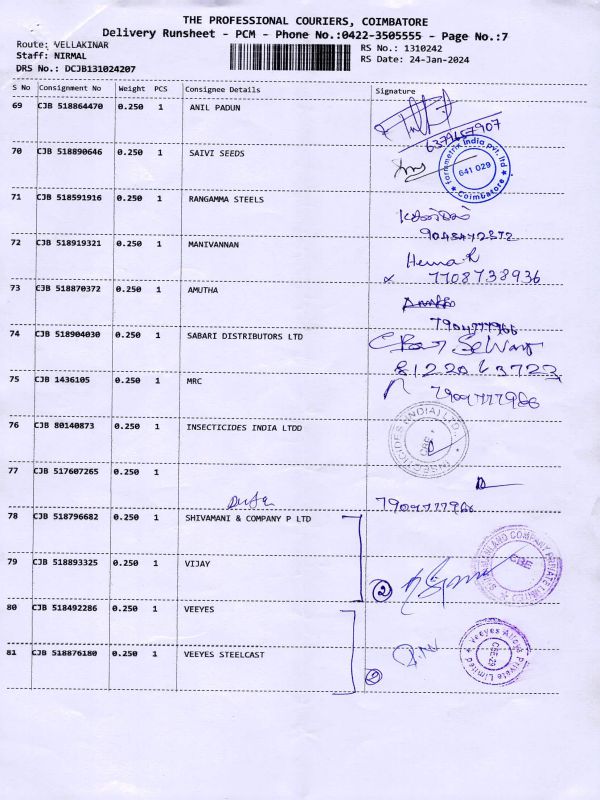 THE PROFESSIONAL COURIERS, COIMBATORE
Delivery Runsheet - PCM - Phone No.:0422-3505555 - Page No.:7
Route: VELLAKINAR
RS No.: 1310242
Staff: NIRMAL
RS Date: 24-Jan-2024
DRS No.: DCJB131024207
S No Consignment No Weight PCS Consignee Details Signature
69 CJB 518864470 0.250 1 ANIL PADUN
6379657907
70 CJB 518890646 0.250 1 SAIVI SEEDS
Terrametrik India pvt. ltd 641 029 Coimbatore
71 CJB 518591916 0.250 1 RANGAMMA STEELS
72 CJB 518919321 0.250 1 MANIVANNAN
Hema.R
7708738936
73 CJB 518870372 0.250 1 AMUTHA
7904777966
74 CJB 518904030 0.250 1 SABARI DISTRIBUTORS LTD
75 CJB 1436105 0.250 1 MRC
7904777966
76 CJB 80140873 0.250 1 INSECTICIDES INDIA LTDD
INSECTICIDES (INDIA) LTD. CBE
77 CJB 517607265 0.250 1
7904777966
78 CJB 518796682 0.250 1 SHIVAMANI & COMPANY P LTD
79 CJB 518893325 0.250 1 VIJAY
2
COMPANY PRIVATE LIMITED CBE
80 CJB 518492286 0.250 1 VEEYES
81 CJB 518876180 0.250 1 VEEYES STEELCAST
2
Veeyes Alloys Private Limited CBE-29